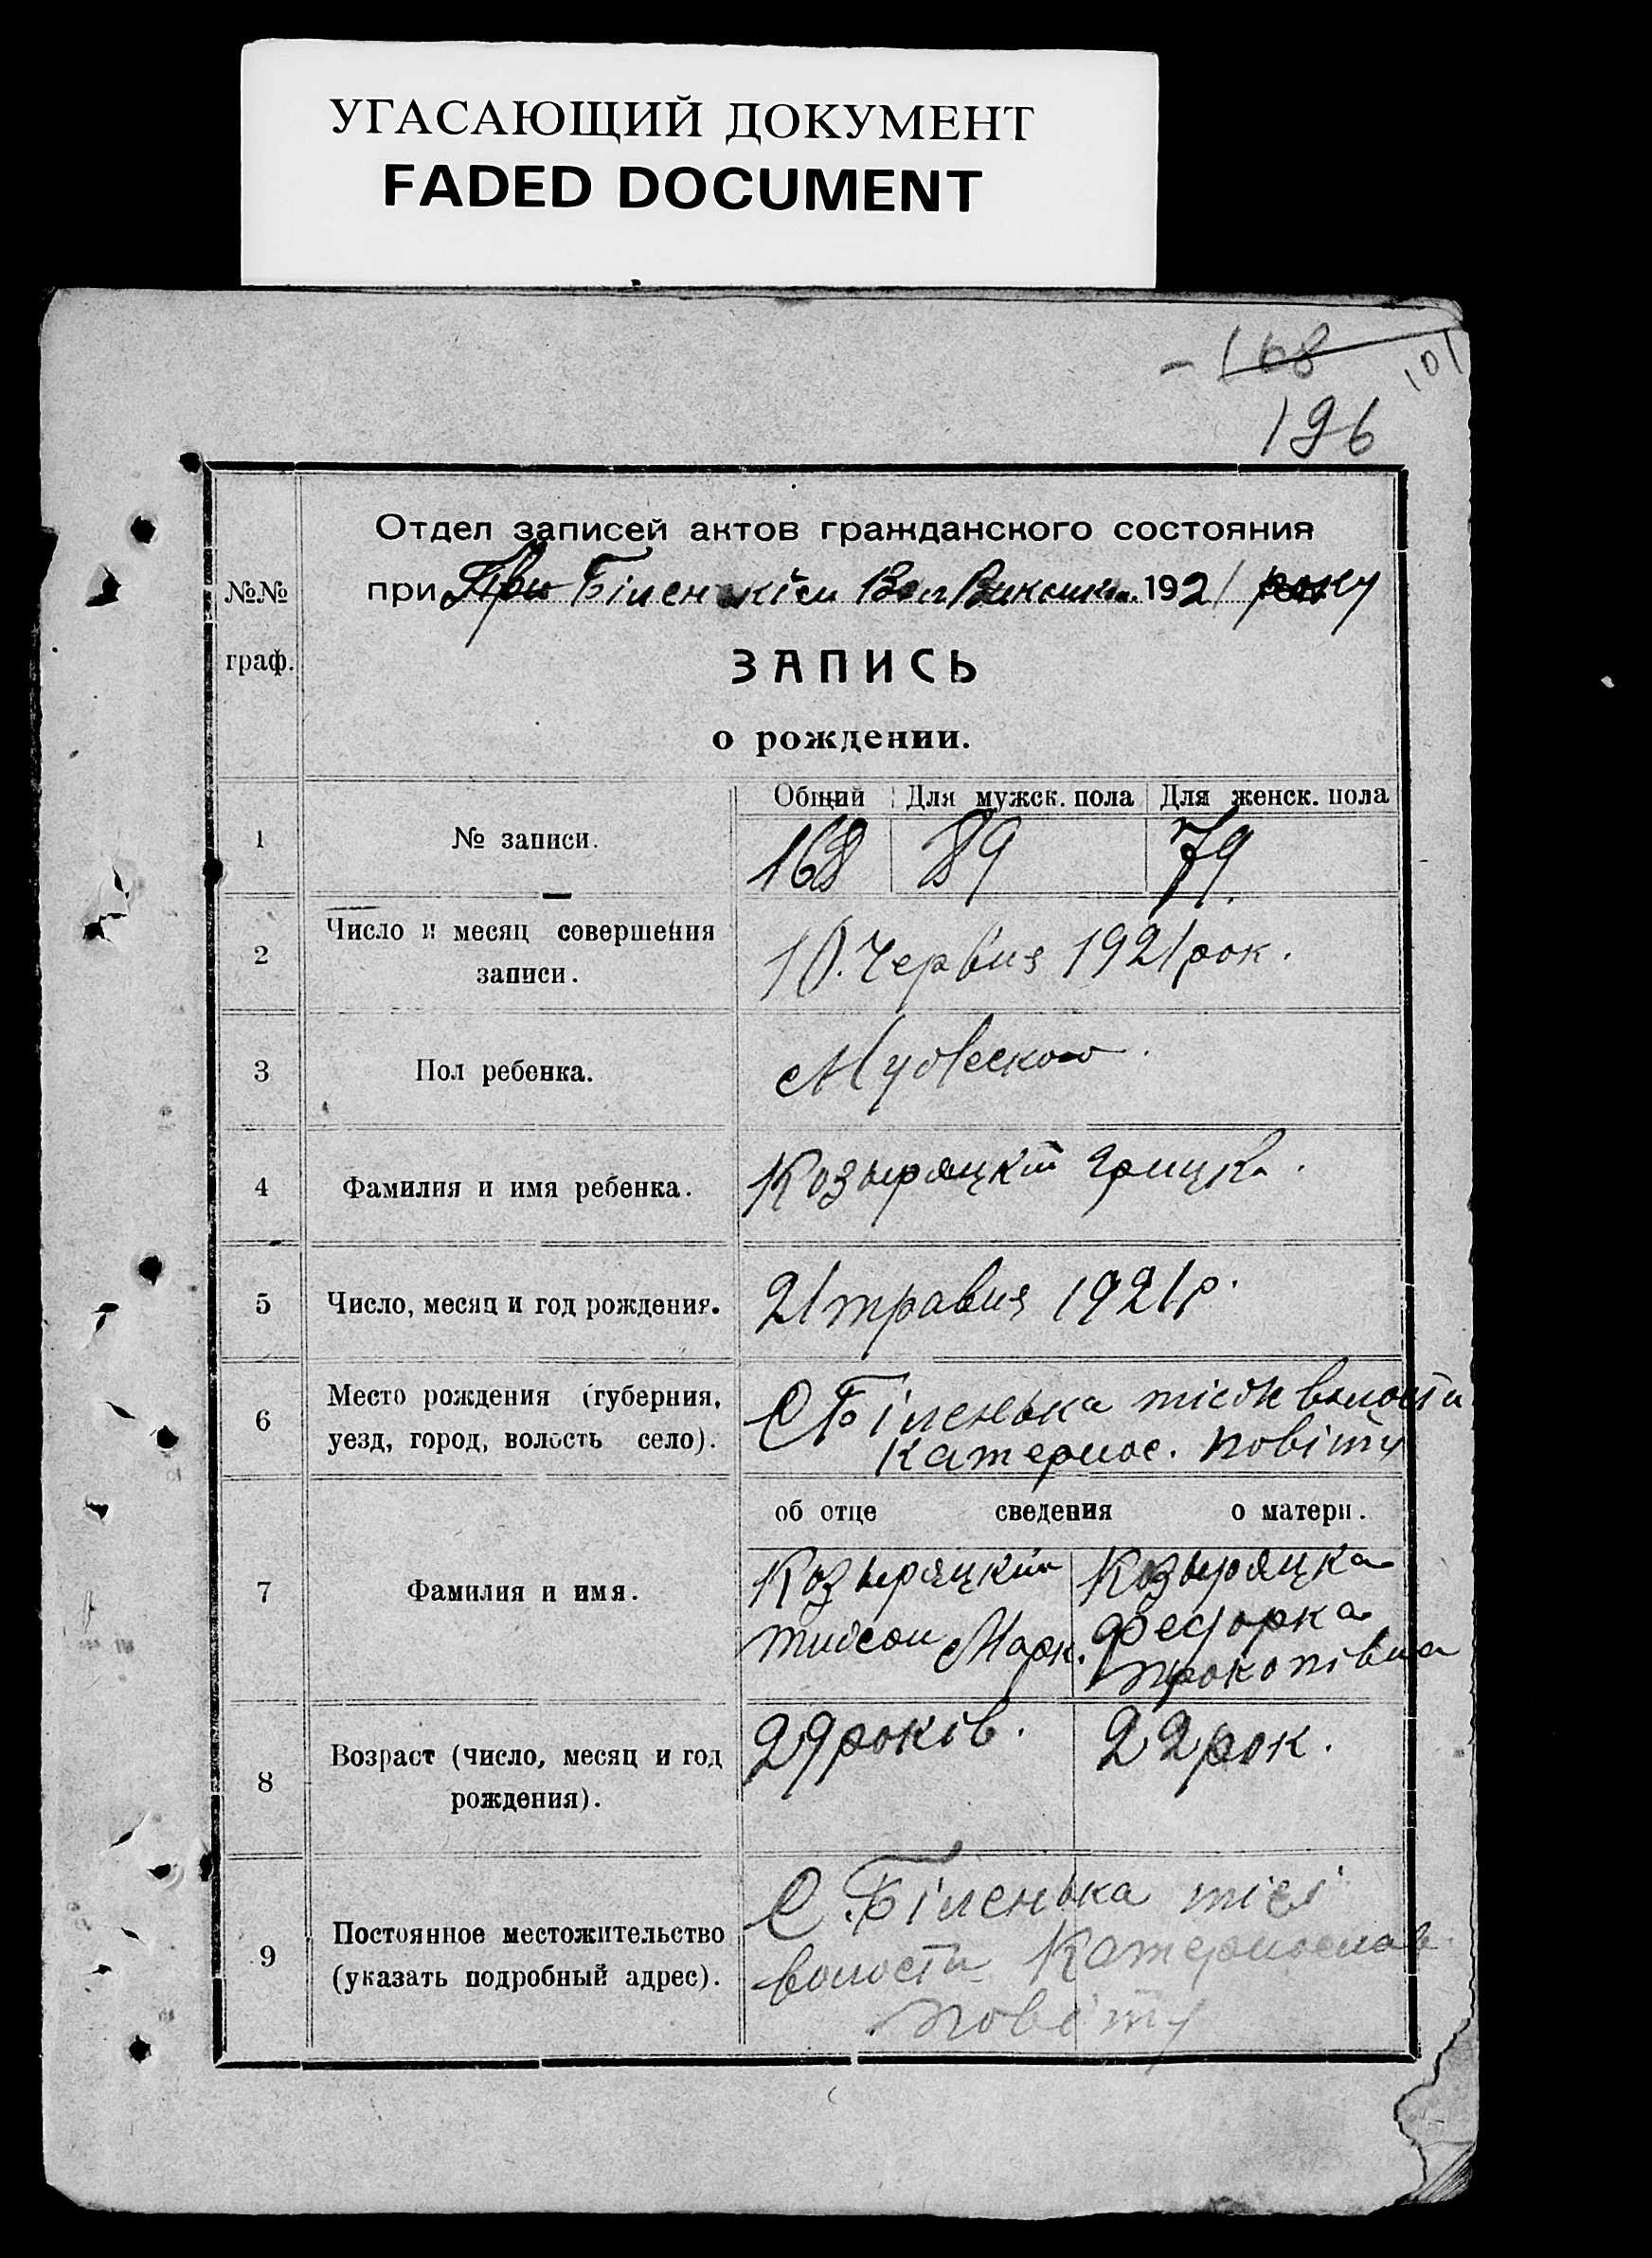 УГАСАЮЩИЙ ДОКУМЕНТ
FADED DOCUMENT
168
101
196
№№
граф.
Отдел записей актов гражданского состояния
при При Біленькім Вол Виконк. 1921 року
ЗАПИСЬ
о рождении.
Общий Для мужск. пола Для женск. пола
1 № записи. 168 89 79
2 Число и месяц совершения
записи.
10. Червня 1921 рок.
3 Пол ребенка.
4 Фамилия и имя ребенка. Козыряцкій Грицко.
5 Число, месяц и год рождения. 21 травня 1921 р.
6 Место рождения (губерния,
уезд, город, волость село).
С Біленька тієї ж волости
Катернос. повіту
об отце сведения о матери.
7 Фамилия и имя.
Козыряцкий
Марк.
Козыряцка
Федорка
Прокопівна
8 Возраст (число, месяц и год
рождения).
29 років.
22 рок.
9 Постоянное местожительство
(указать подробный адрес).
С. Біленька тієї
волости Катеринослав.
повіту